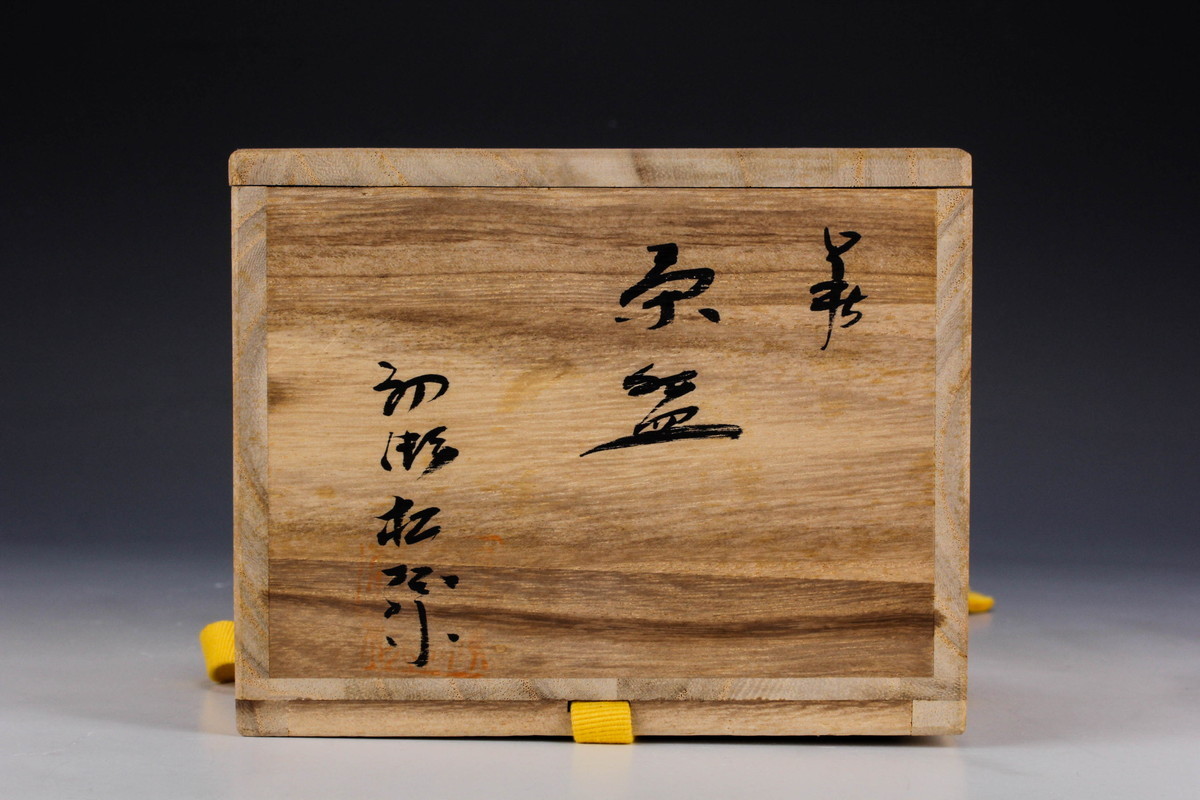 萩
茶盌
初瀬松